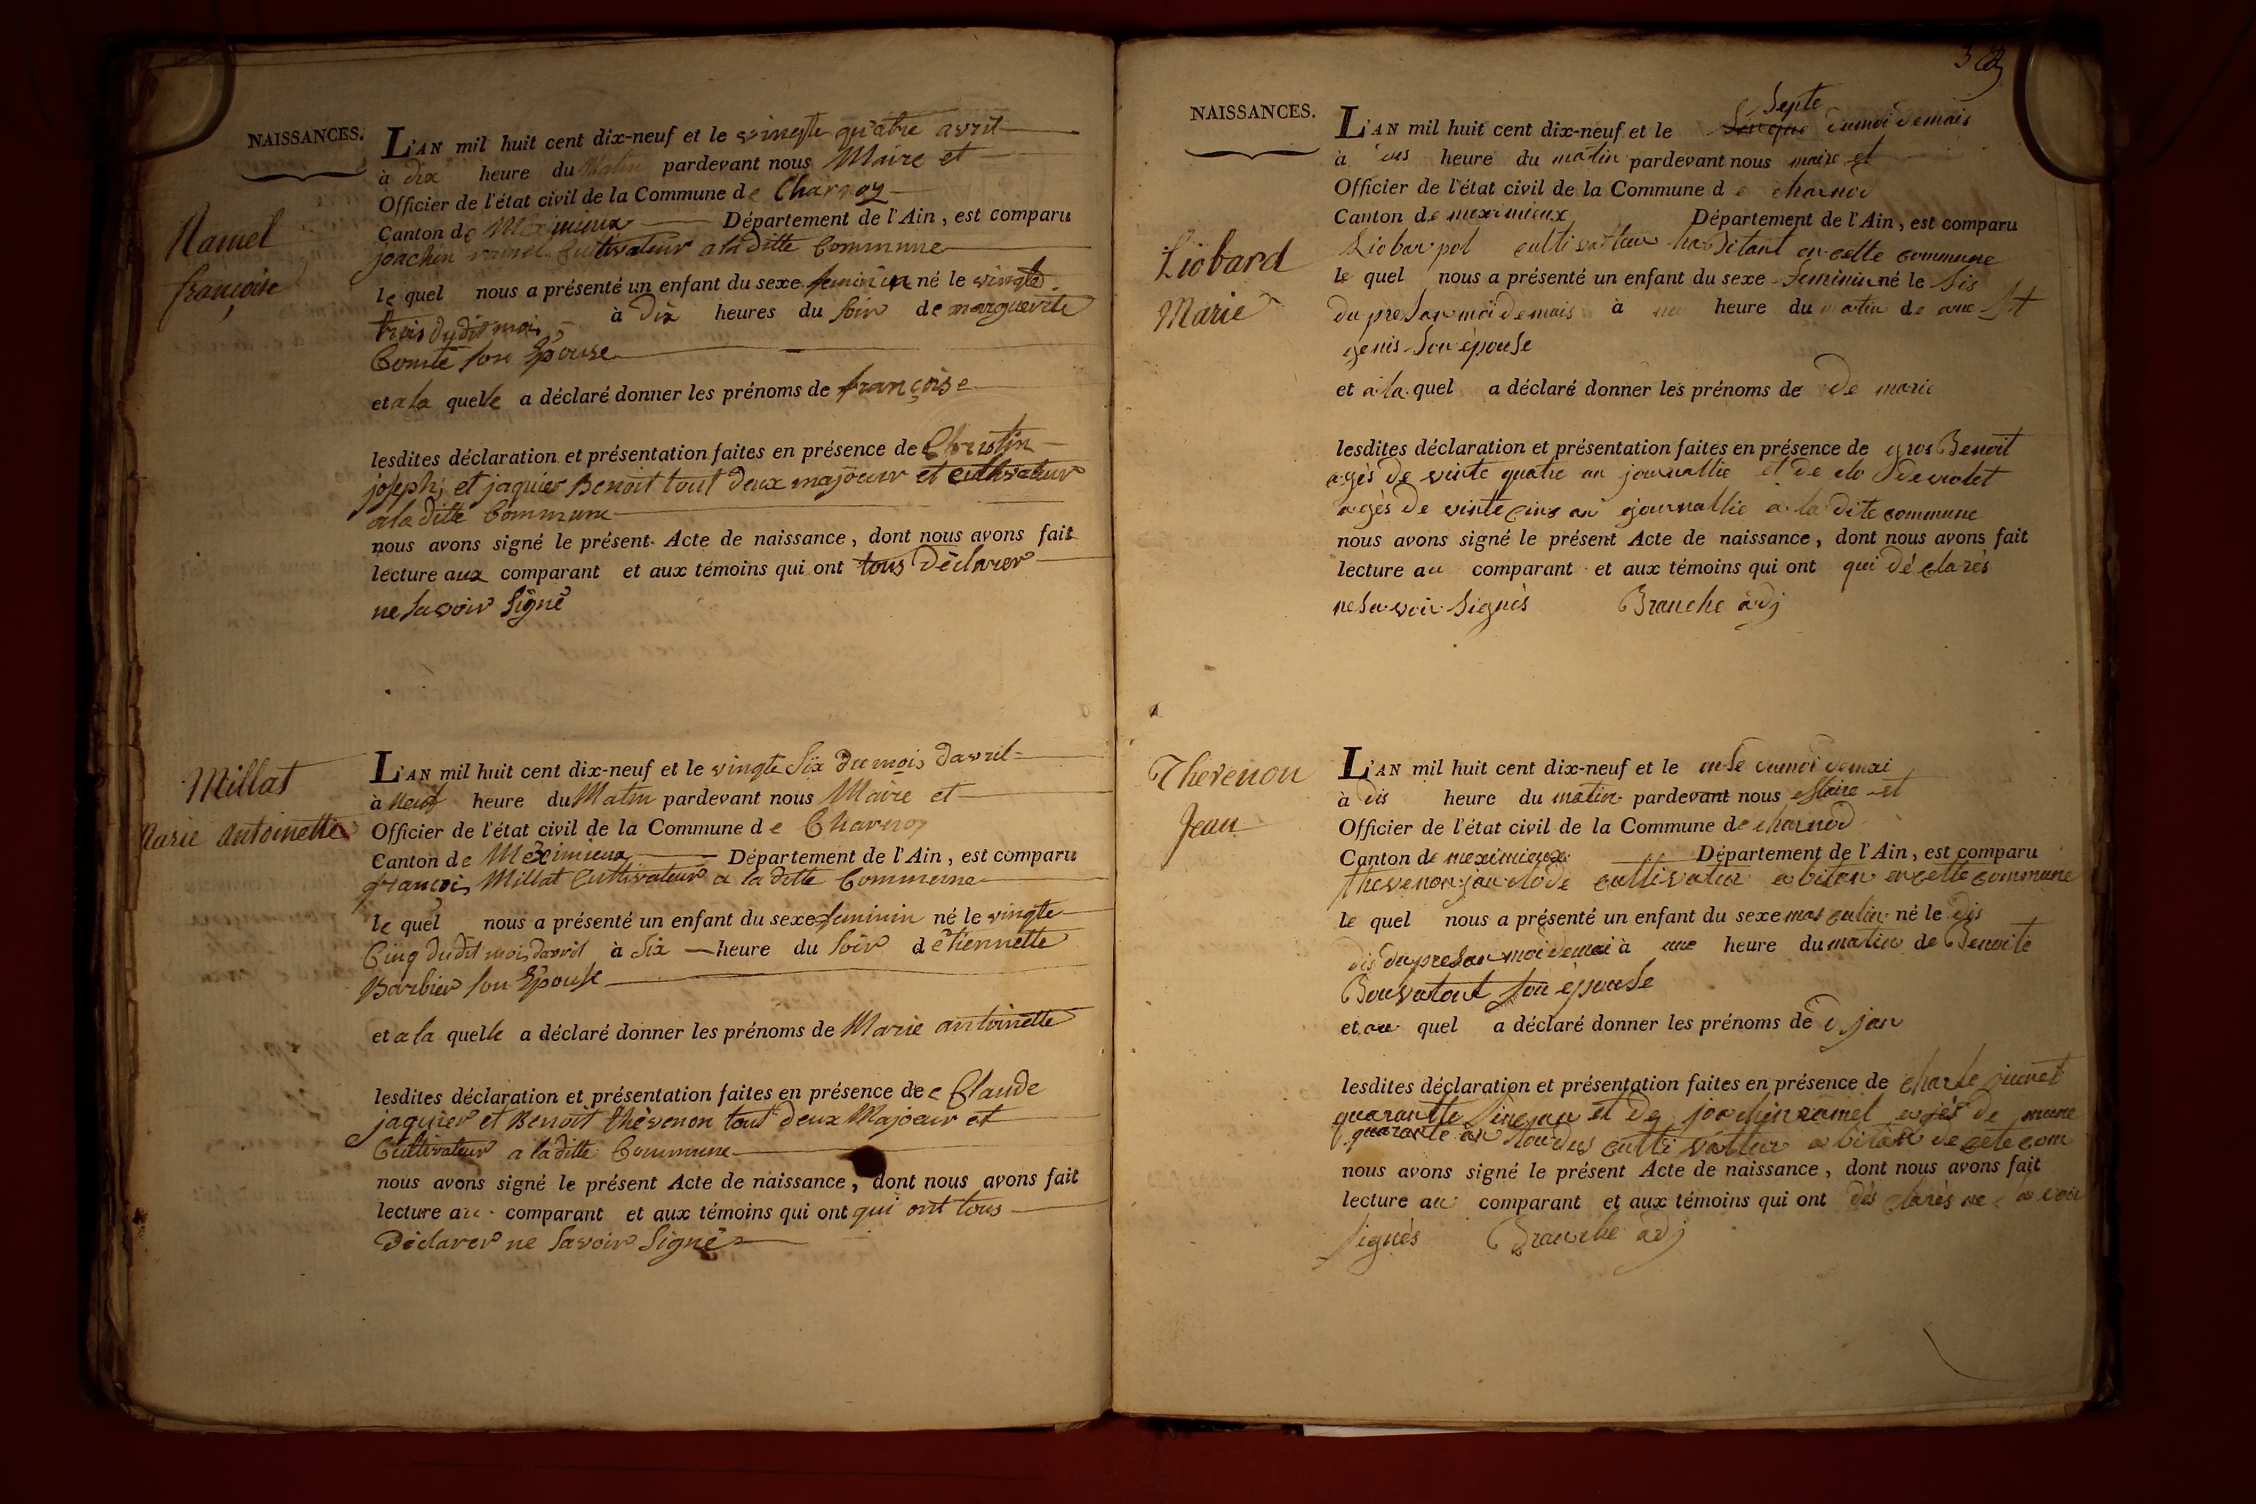 NAISSANCES.
Ramel
françoise
L'AN mil huit cent dix-neuf et le vingte quatre avril
à dix heure du Matin pardevant nous Maire et
Officier de l'état civil de la Commune de Charnoz
Canton de Meximieux Département de l'Ain, est comparu
joachin ramel Cultivateur a la ditte Commune
le quel nous a présenté un enfant du sexe feminin né le vingte
trois dudit mois à Dix heures du Soir de marguerite
Comte son Epouse
et a la quelle a déclaré donner les prénoms de françoise
lesdites déclaration et présentation faites en présence de Christin
joseph, et jaquier Benoit tout deux majoeur et cultivateur
a la ditte Commune
nous avons signé le présent Acte de naissance, dont nous avons fait
lecture aux comparant et aux témoins qui ont tous Déclarer
ne Savoir Signé
Millat
Marie Antoinette
L'AN mil huit cent dix-neuf et le vingte Six du mois davril
à neuf heure du Matin pardevant nous Maire et
Officier de l'état civil de la Commune de Charnoz
Canton de Meximieux Département de l'Ain, est comparu
françois Millat Cultivateur a la ditte Commune
le quel nous a présenté un enfant du sexe feminin né le vingte
Cinq dudit mois davril à Six heure du Soir d étiennette
Barbier son Epouse
et a la quelle a déclaré donner les prénoms de Marie antoinette
lesdites déclaration et présentation faites en présence de Claude
jaquier et Benoit thévenon tout deux Majoeur et
Cultivateur a la ditte Commune
nous avons signé le présent Acte de naissance, dont nous avons fait
lecture au comparant et aux témoins qui ont qui ont tous
Déclarer ne Savoir Signé
NAISSANCES.
Liobard
Marie
Septe
L'AN mil huit cent dix-neuf et le dumoi demais
à heure du matin pardevant nous maire et
Officier de l'état civil de la Commune de charnod
Canton de meximieux Département de l'Ain, est comparu
Liobar pol cultivatteur habitant en cette commune
le quel nous a présenté un enfant du sexe feminin né le Sis
du presan moi demais à heure du matin de ane St
genis Son épouse
et a la quel a déclaré donner les prénoms de de marie
lesdites déclaration et présentation faites en présence de gros Benoit
agés de vinte quatre an journallie et de clo deviolet
agés de vinte cinq an journallie a la dite commune
nous avons signé le présent Acte de naissance, dont nous avons fait
lecture au comparant et aux témoins qui ont qui déclarés
ne Savoir Signés Branche adj
Thevenon
Jean
L'AN mil huit cent dix-neuf et le onse dumoi demai
à dis heure du matin pardevant nous Maire et
Officier de l'état civil de la Commune de charnod
Canton de meximieux Département de l'Ain, est comparu
thevenon jan clode cultivateur abitan en cette commune
le quel nous a présenté un enfant du sexe masculin né le dis
dis du presan moi demai à une heure du matin de Benoite
Bouvatout Son épouse
et au quel a déclaré donner les prénoms de d jan
lesdites déclaration et présentation faites en présence de charle
quarantte Sinc an et de joachin ramel agés de mune
quarante an tou deu cultivatteur abitan de cete com
nous avons signé le présent Acte de naissance, dont nous avons fait
lecture au comparant et aux témoins qui ont dés clarés ne Savoir
Signés Branche adj